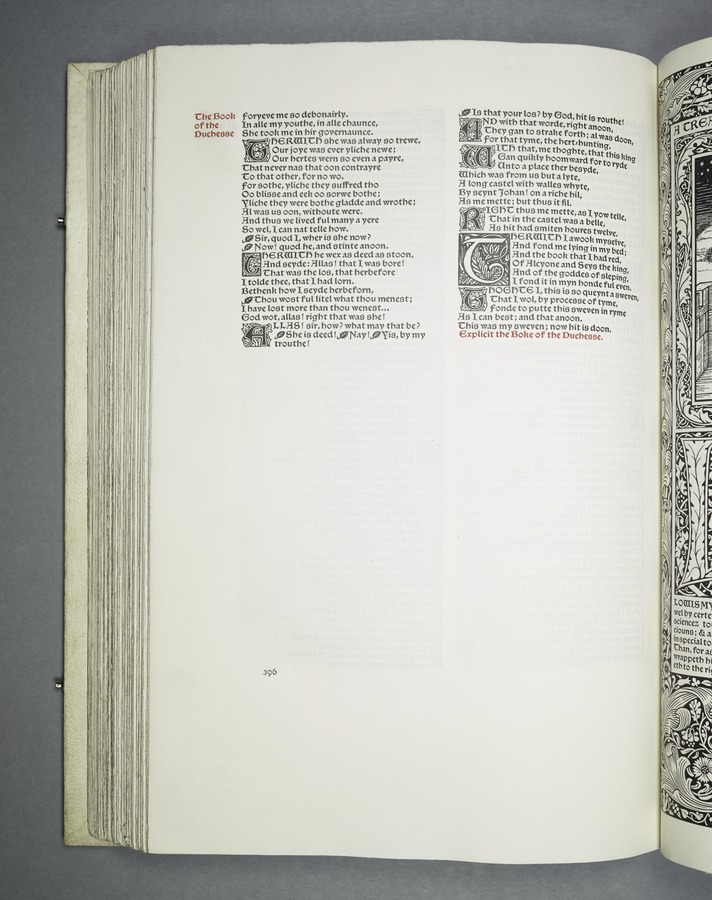 The Book
of the
Duchesse
foryeve me so debonairly.
In alle my youthe, in alle chaunce,
She took me in hir governaunce.
THERWITH she was alway so trewe,
Our joye was ever yliche newe;
Our hertes wern so even a payre,
That never nas that oon contrayre
To that other, for no wo.
For sothe, yliche they suffred tho
Oo blisse and eek oo sorwe bothe;
Yliche they were bothe gladde and wrothe;
Al was us oon, withoute were.
And thus we lived ful many a yere
So wel, I can nat telle how.
Sir, quod I, wher is she now?
Now! quod he, and stinte anoon.
THERWITH he wex as deed as stoon,
And seyde: Allas! that I was bore!
That was the los, that herbefore
I tolde thee, that I had lorn.
Bethenk how I seyde herbeforn,
Thou wost ful litel what thou menest;
I have lost more than thou wenest...
God wot, allas! right that was she!
ALLAS! sir, how? what may that be?
She is deed! Nay! Yis, by my
trouthe!
Is that your los? by God, hit is routhe!
AND with that worde, right anoon,
They gan to strake forth; al was doon,
For that tyme, the hert-hunting.
WITH that, me thoghte, that this king
Gan quikly hoomward for to ryde
Unto a place ther besyde,
Which was from us but a lyte,
A long castel with walles whyte,
By seynt Johan! on a riche hil,
As me mette; but thus it fil.
RIGHT thus me mette, as I yow telle,
That in the castel was a belle,
As hit had smiten houres twelve.
THERWITH I awook myselve,
And fond me lying in my bed;
And the book that I had red,
Of Alcyone and Seys the king,
And of the goddes of sleping,
I fond it in myn honde ful even.
THOGHTE I, this is so queynt a sweven,
That I wol, by processe of tyme,
Fonde to putte this sweven in ryme
As I can best; and that anoon.
This was my sweven; now hit is doon.
Explicit the Boke of the Duchesse.
396
A TREA
LOWIS MY
wel by certe
sciencez to
ciouns; & a
in special to
Than, for as
wrappeth hi
eth to the rig